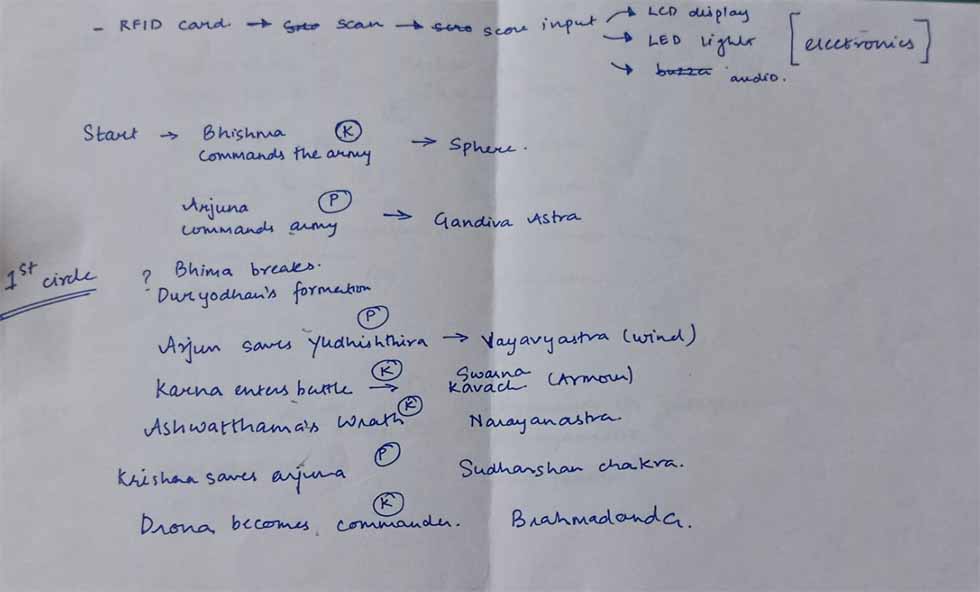 - RFID card. → scan → score input → LCD display
→ LED lights [electronics]
→ audio.
Start → Bhishma (K)
commands the army → Sphere.
Arjuna (P)
commands army → Gandiva Astra
1st circle
? Bhima breaks.
Duryodhan's formation
Arjun saves Yudhishthira (P) → Vayavyastra (wind)
Karna enters battle (K) → Swarna Kavach (Armour)
Ashwatthama's Wrath (K) Narayanastra.
Krishna saves arjuna (P) Sudharshan chakra.
Drona becomes commander. (K) Brahmadanda.